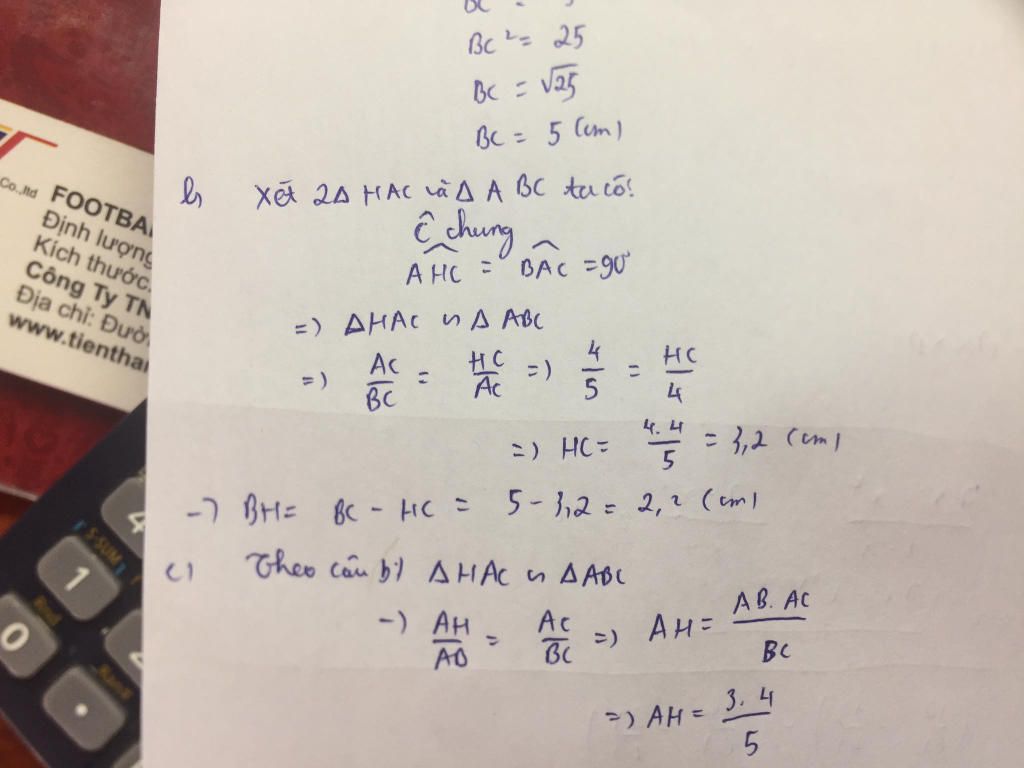 BC² = 25
BC = √25
BC = 5 (cm)
b, Xét 2Δ HAC và Δ ABC ta có:
Ĉ chung
AHC = BAC = 90°
=> ΔHAC ∽ Δ ABC
=> AC/BC = HC/AC => 4/5 = HC/4
=> HC = 4.4/5 = 3,2 (cm)
-> BH = BC - HC = 5 - 3,2 = 2,2 (cm)
c) Theo câu b) ΔHAC ∽ ΔABC
-> AH/AB = AC/BC => AH = AB.AC/BC
=> AH = 3.4/5
Co.,ltd
FOOTBA
Định lượng
Kích thước:
Công Ty TN
Địa chỉ: Đườ
www.tientha
4
S-SUM
1
0
Rnd